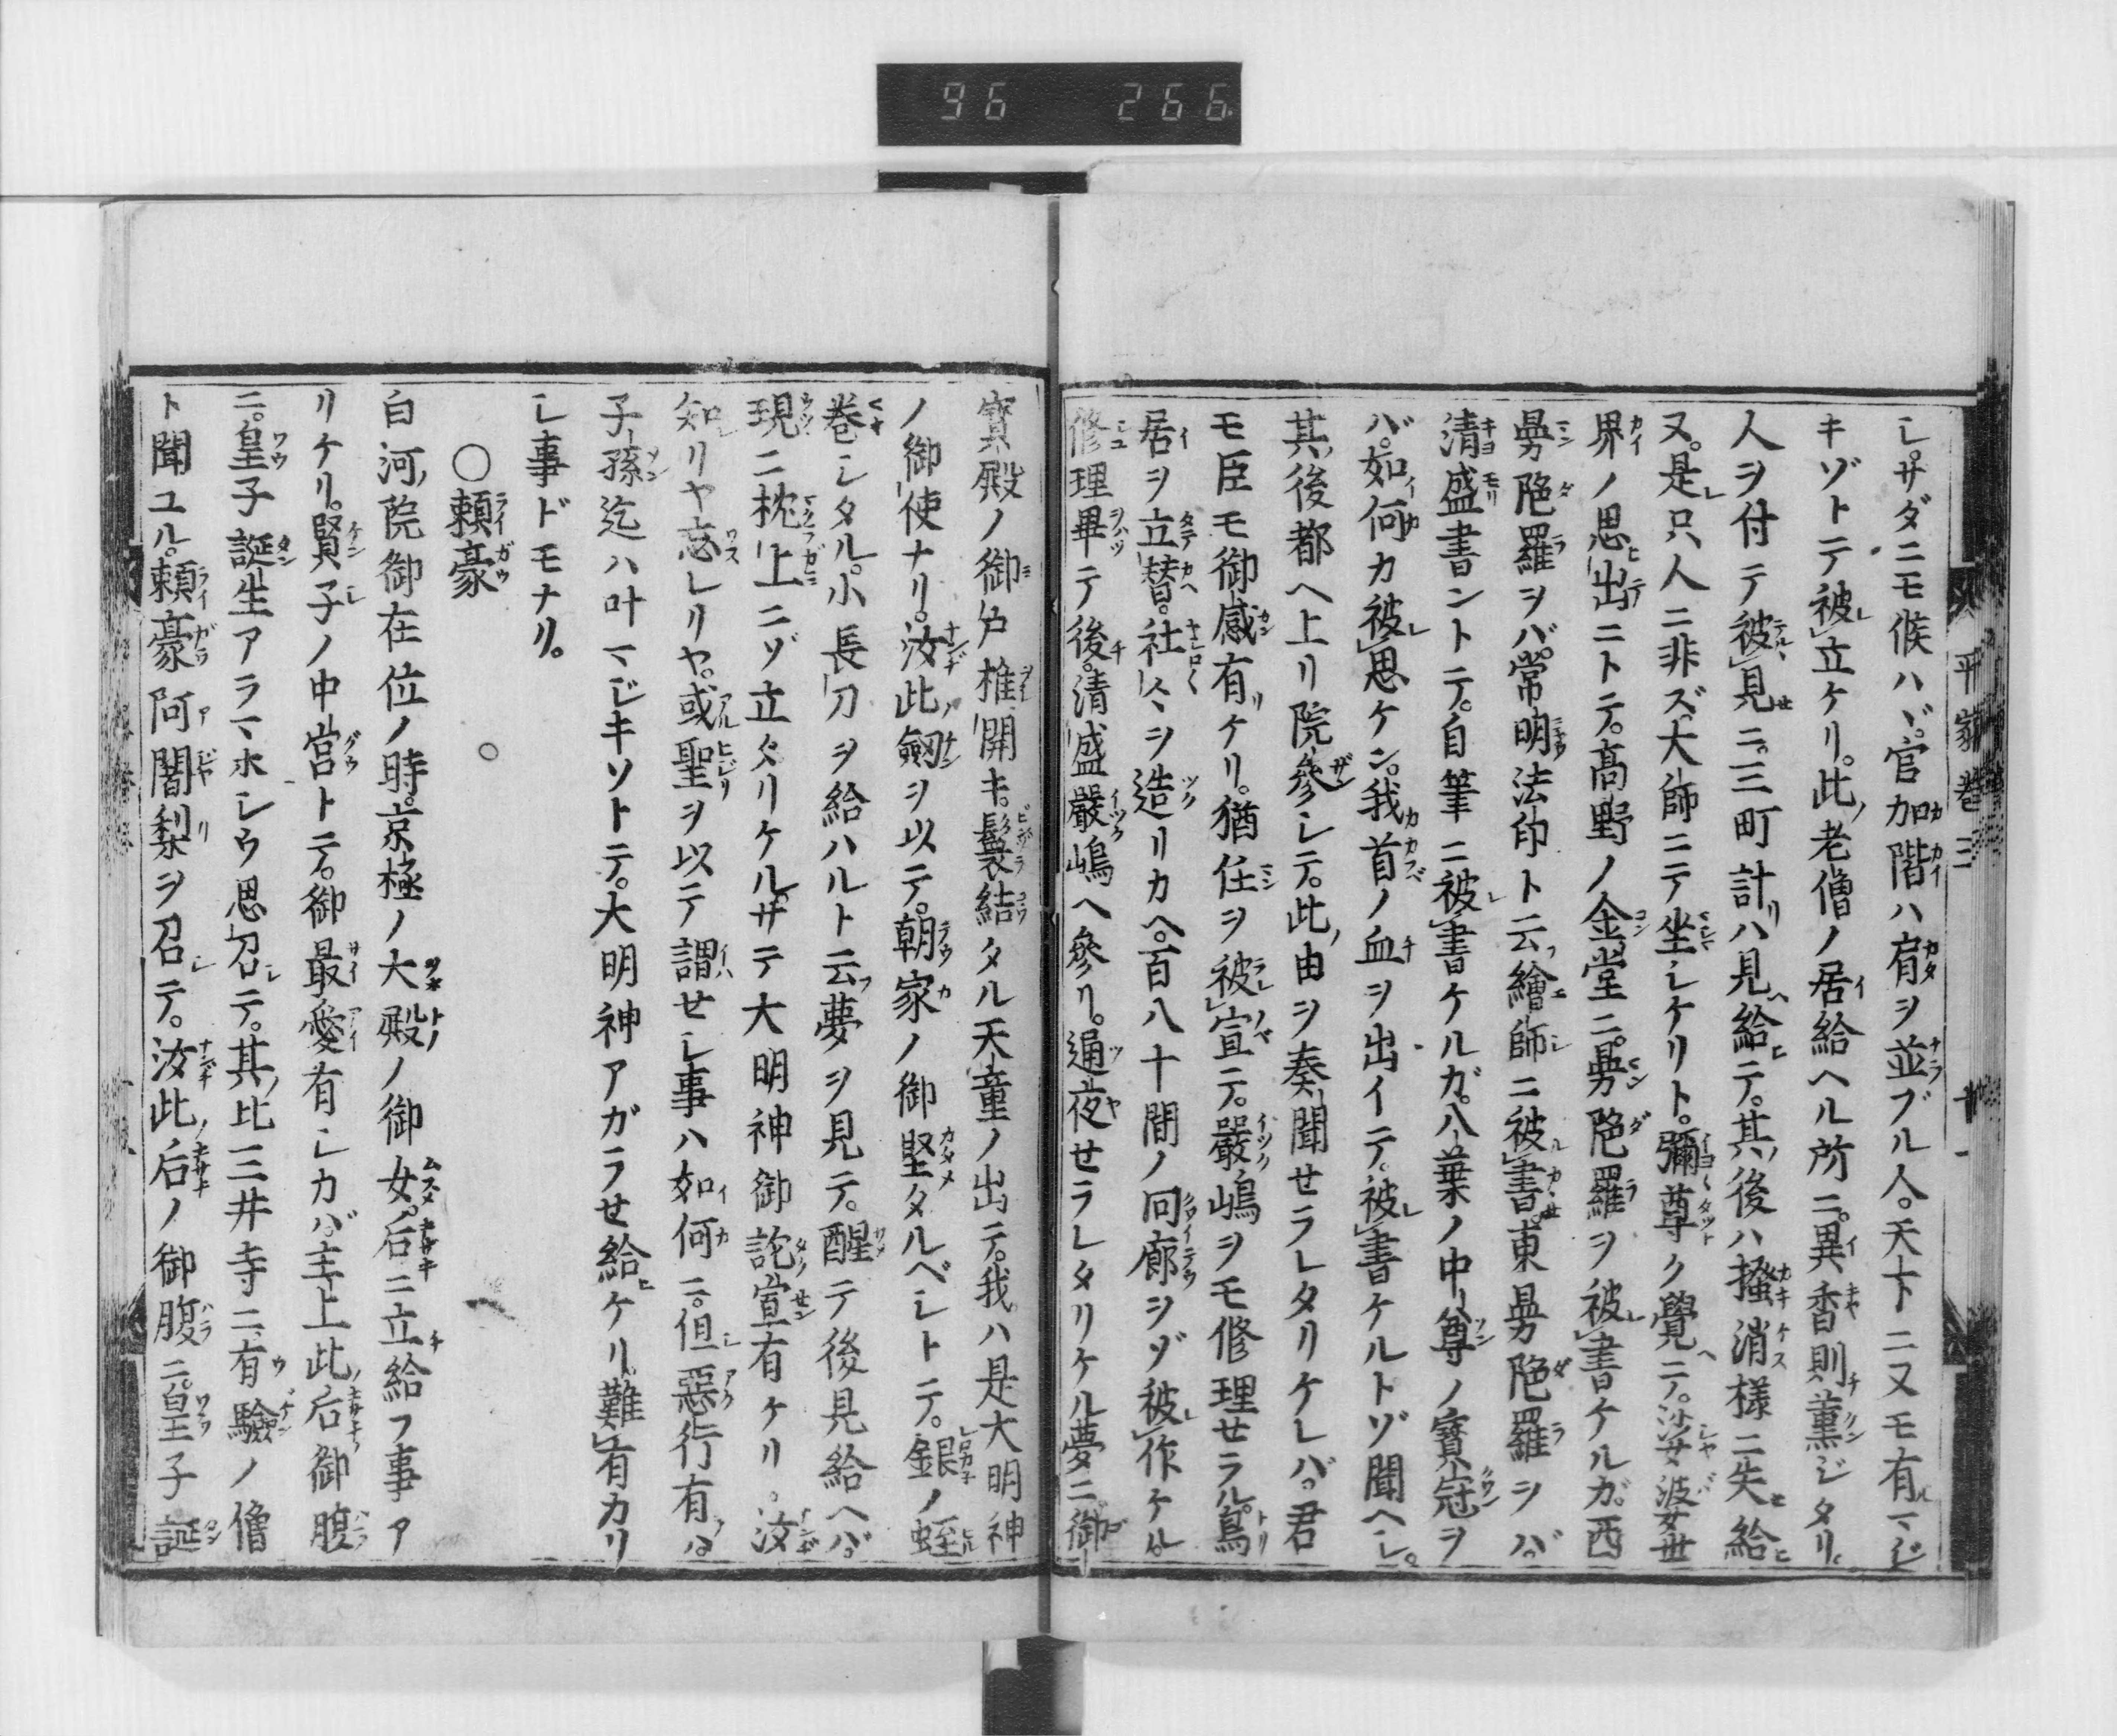 96 266
平家巻三 十一
シ。サダニモ候ハヾ。官加階ハ肩ヲ並ブル人。天下ニ又モ有マジ
キゾトテ被立ケリ。此老僧ノ居給ヘル所ニ。異香則薫ジタリ。
人ヲ付テ被見ニ。三町計リハ見ヘ給ヒテ。其後ハ搔消様ニ失セ給ヒ
ヌ。是只人ニ非ズ大師ニテ坐シケリト。彌尊ク覺ヘテ。娑婆世
界ノ思出ニトテ。高野ノ金堂ニ。曼陀羅ヲ被書ケルガ。西
曼陀羅ヲバ。常明法印ト云繪師ニ被書。東曼陀羅ヲバ。
清盛書ントテ。自筆ニ被書ケルガ。八葉ノ中尊ノ寳冠ヲ
バ。如何カ被思ケン。我首ノ血ヲ出イテ。被書ケルトゾ聞ヘシ。
其後都ヘ上リ院參シテ。此由ヲ奏聞セラレタリケレバ。君
モ臣モ御感有ケリ。猶任ヲ被宣テ。嚴嶋ヲモ修理セラル。鳥
居ヲ立替。社々ヲ造リカヘ。百八十間ノ回廊ヲゾ被作ケル。
修理畢テ後。清盛嚴嶋ヘ參リ。通夜セラレタリケル夢ニ御
寳殿ノ御戸推開キ。鬟結タル天童ノ出テ。我ハ是大明神
ノ御使ナリ。汝此劔ヲ以テ。朝家ノ御堅タルベシトテ。銀ノ蛭
巻シタル。小長刀ヲ給ハルト云夢ヲ見テ。醒テ後見給ヘバ。
現ニ枕上ニゾ立タリケル。サテ大明神御詫宣有ケリ。汝
知リヤ忘レリヤ。或聖ヲ以テ謂セシ事ハ如何ニ。但惡行有ハ。
子孫迄ハ叶マジキソトテ。大明神アガラセ給ヒケリ。難有カリ
シ事ドモナリ。
○頼豪
白河院御在位ノ時。京極ノ大殿ノ御女。后ニ立給フ事ア
リケリ。賢子ノ中宮トテ。御最愛有シカバ。主上此后御腹
ニ。皇子誕生アラマホシウ思召テ。其比三井寺ニ有驗ノ僧
ト聞ユル。頼豪阿闍梨ヲ召テ。汝此后ノ御腹ニ。皇子誕